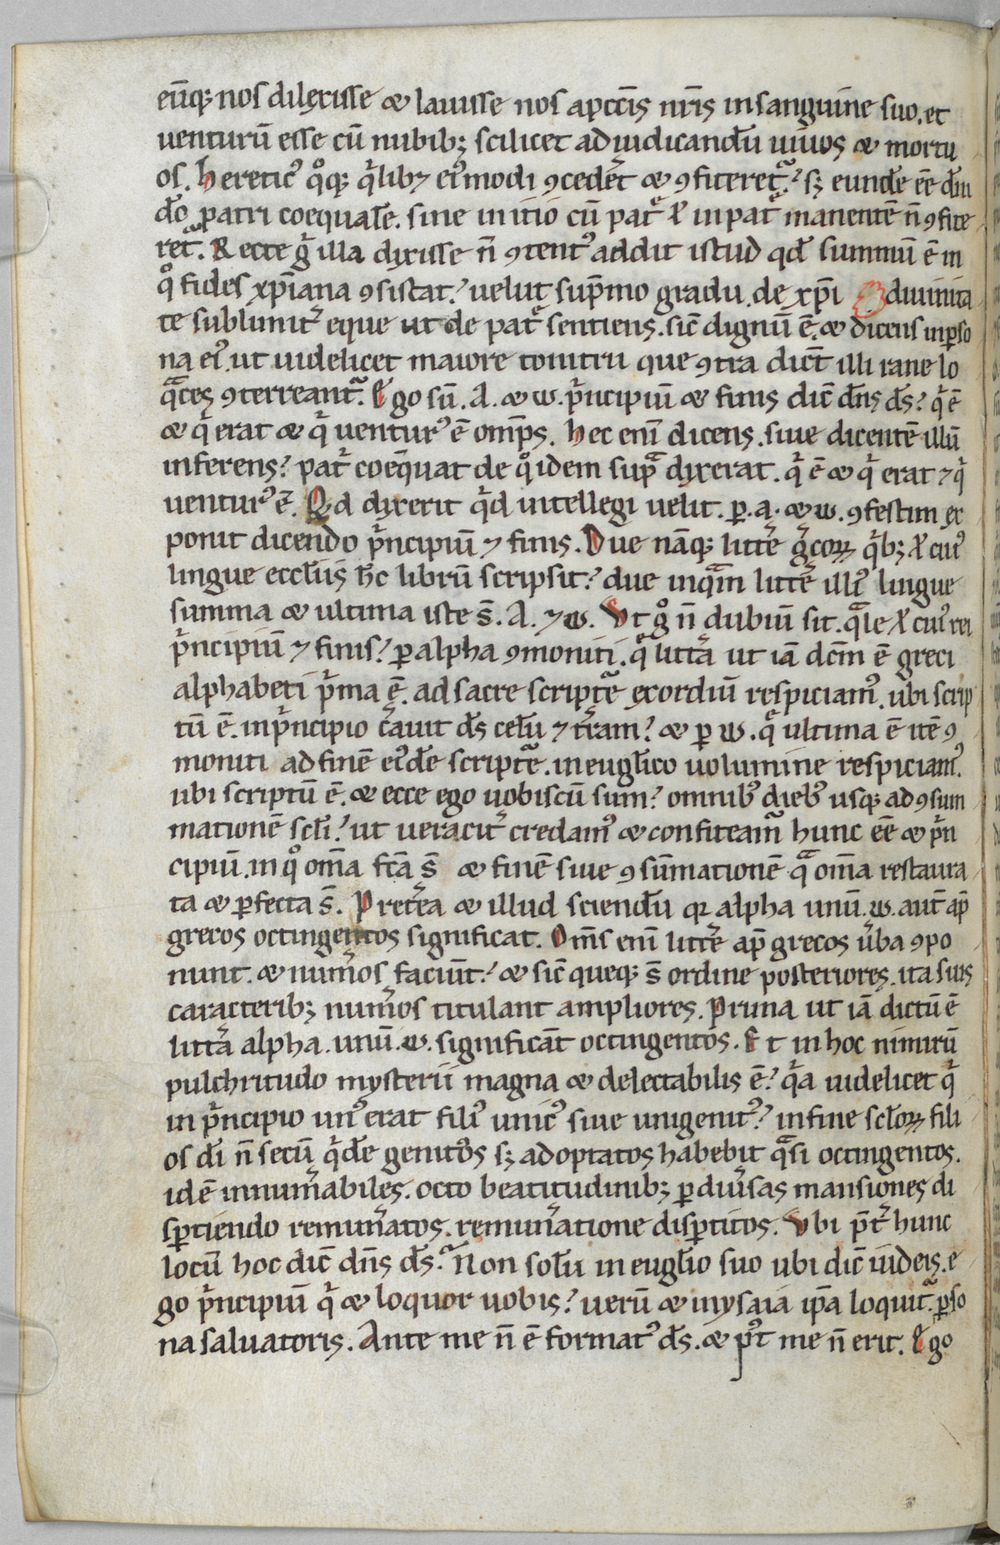 eūq; nos dilexisse & lauisse nos a pcc̄is nr̄is in sanguine suo. et
uenturū esse cū nubib; scilicet ad iudicandū uiuos & mortu
os. heretic᷒ qͦq; qͥlibꝫ ei᷒modi ꝯcedēt & ꝯfiteret᷑. sꝫ eundē eē dm̄
dō patri coequalē. sine initio cū pat̄ ⁊ in pat̄ manentē n̄ ꝯfite
ret᷑. Recte gͦ illa dixisse n̄ ꝯtent᷒ addit istud qd̄ summū ē in
qͦ fides xp̄iana ꝯsistat. uelut sup̄mo gradu. de xp̄i diuinita
te sublimit̄ eque ut de pat̄ sentiens. sic̄ dignū ē. & dicens in pso
na ei᷒. ut uidelicet maiore tonitru que ꝯtra dic̄t illi rane lo
qͣces ꝯterreant᷑. Ego sū. A. & ω. pͥncipiū & finis dic̄ dn̄s ds̄. qͥ ē
& qͥ erat & qͥ uentur᷒ ē omp̄s. Hec eni dicens. siue dicentē illū
inferens. pat̄ coequat de qͦ idem supͣ dixerat. qͥ ē & qͥ erat ⁊ qͥ
uentur᷒ ē. Qd dixerit qͥd intellegi uelit. p. a. & ω. ꝯfestim ex
ponit dicendo pͥncipiū ⁊ finis. Due nāq; litt̄e gͣcoꝝ qͥb; ⁊ cui᷒
lingue eccl̄iis hc̄ librū scripsit. due inqͣm litt̄e illi᷒ lingue
summa & ultima iste s̄. A. ⁊ ω. Vt gͦ n̄ dubiū sit. qͣle ⁊ cui᷒ rei
pͥncipiū ⁊ finis. p alpha ꝯmoniti. q̄ litt̄a ut iā dc̄m ē greci
alphabeti pͥma ē. ad sacre script̄e exordiū respiciam᷒. ubi scrip
tū ē. in pͥncipio c̄auit ds̄ celū ⁊ t̄ram. & p ω. q̄ ultima ē itē ꝯ
moniti ad finē ei᷒dē script̄e. in eugl̄ico uolumine respiciam᷒.
ubi scriptū ē. & ecce ego uobiscū sum. omnib᷒ dieb᷒ usq; ad ꝯsum
mationē scl̄i. ut ueracit̄ credam᷒ & confiteam᷑ hunc eē & pͥn
cipiū. in qͦ om̄a fc̄a s̄ & finē siue ꝯsūmationē qͣ om̄a restaura
ta & pfecta s̄. Pret̄ea & illud sciendū qꝛ alpha unū. ω. aut̄ ap̄
grecos octingentos significat. Om̄s eni litt̄e ap̄ grecos ūba ꝯpo
nunt. & num̄os faciūt. & sic̄ queq; s̄ ordine posteriores. ita suis
caracterib; num̄os titulant ampliores. Prima ut iā dictū ē
litt̄a alpha. unū. ω. significāt octingentos. Et in hoc nimirū
pulchritudo mysterii magna & delectabilis ē. qͥa uidelicet qͥ
in pͥncipio un᷒ erat fili᷒ unic᷒ siue unigenit᷒. in fine scl̄oꝝ fili
os di n̄ secū qͥdē genitos sꝫ adoptatos habebit qͣsi octingentos.
idē innum̄abiles. octo beatitudinib; p diūsas mansiones di
sptiendo remun̄atos. remun̄atione disptitos. Vbi pt̄ hunc
locū hoc dic̄ dn̄s ds̄. Non solū in eugl̄io suo ubi dic̄ iudeis. e
go pͥncipiū qͥ & loquor uobis. uerū & in ysaia ipa loquit᷑ pso
na saluatoris. Ante me n̄ ē format᷒ ds̄. & p᷒t me n̄ erit. Ego